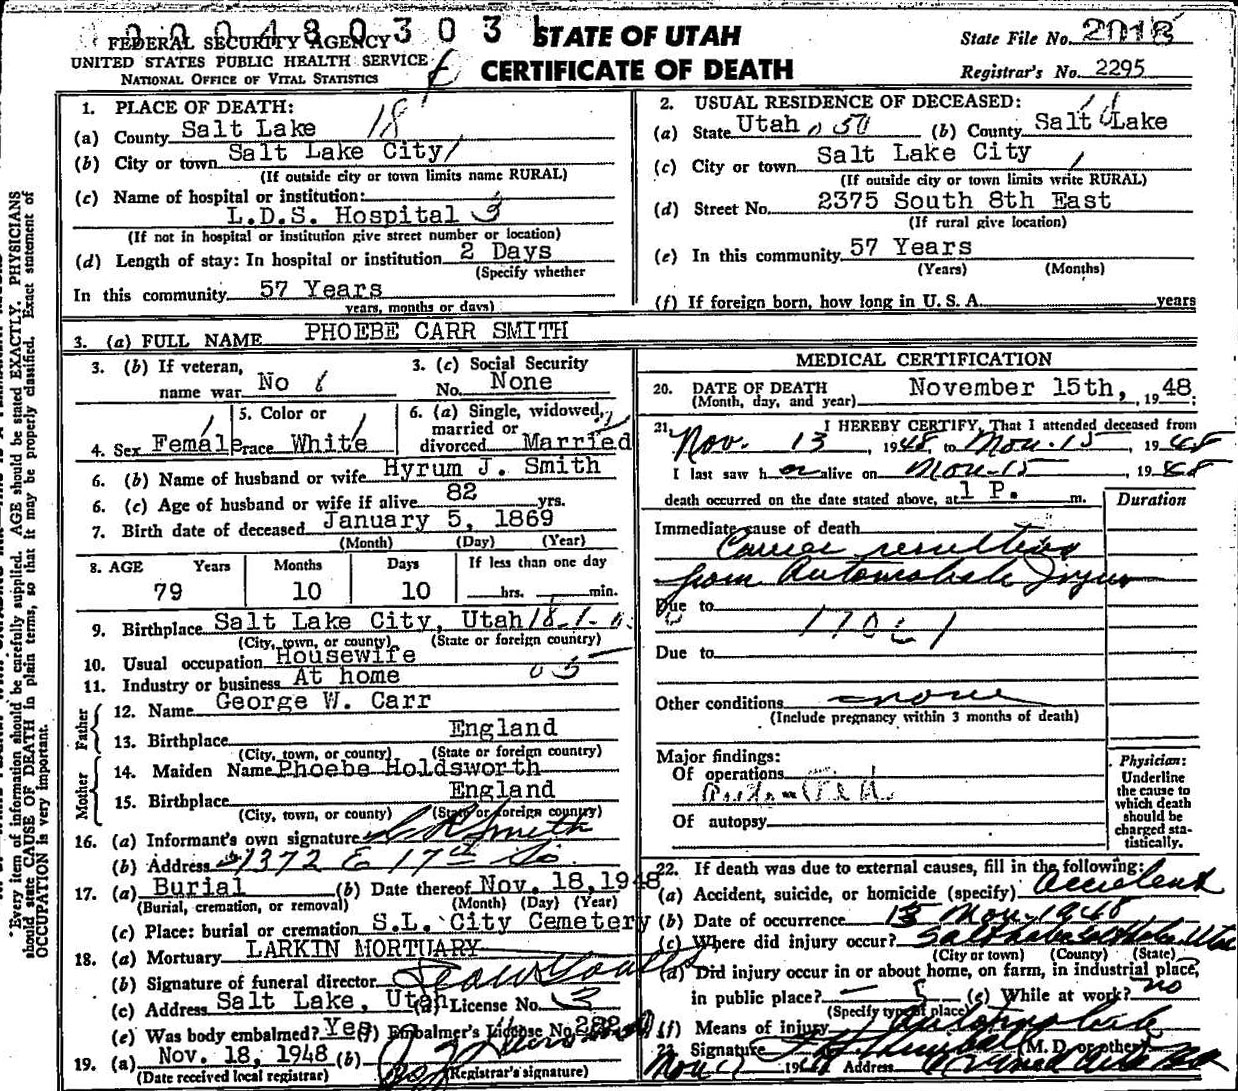 0 0 0 4 8 0 3 0 3
FEDERAL SECURITY AGENCY
UNITED STATES PUBLIC HEALTH SERVICE
NATIONAL OFFICE OF VITAL STATISTICS
STATE OF UTAH
CERTIFICATE OF DEATH
State File No.
Registrar's No. 2295
1. PLACE OF DEATH: 18
(a) County Salt Lake
(b) City or town Salt Lake City
(If outside city or town limits name RURAL)
(c) Name of hospital or institution:
L.D.S. Hospital 3
(If not in hospital or institution give street number or location)
(d) Length of stay: In hospital or institution 2 Days
(Specify whether
In this community 57 Years
years, months or days)
2. USUAL RESIDENCE OF DECEASED:
(a) State Utah (b) County Salt Lake
(c) City or town Salt Lake City
(If outside city or town limits write RURAL)
(d) Street No. 2375 South 8th East
(If rural give location)
(e) In this community 57 Years
(Years) (Months)
(f) If foreign born, how long in U. S. A. years
3. (a) FULL NAME PHOEBE CARR SMITH
3. (b) If veteran,
name war No
3. (c) Social Security
No. None
4. Sex Female
5. Color or
race White
6. (a) Single, widowed,
married or
divorced Married
6. (b) Name of husband or wife Hyrum J. Smith
6. (c) Age of husband or wife if alive 82 yrs.
7. Birth date of deceased January 5, 1869
(Month) (Day) (Year)
8. AGE Years Months Days If less than one day
79 10 10 hrs. min.
9. Birthplace Salt Lake City, Utah
(City, town, or county) (State or foreign country)
10. Usual occupation Housewife
11. Industry or business At home
Father
12. Name George W. Carr
13. Birthplace England
(City, town, or county) (State or foreign country)
Mother
14. Maiden Name Phoebe Holdsworth
15. Birthplace England
(City, town, or county) (State or foreign country)
16. (a) Informant's own signature Smith
(b) Address 1372 E 17th So
17. (a) Burial (b) Date thereof Nov. 18, 1948
(Burial, cremation, or removal) (Month) (Day) (Year)
(c) Place: burial or cremation S.L. City Cemetery
18. (a) Mortuary LARKIN MORTUARY
(b) Signature of funeral director
(c) Address Salt Lake, Utah (d) License No. 3
(e) Was body embalmed? Yes (f) Embalmer's License No.
19. (a) Nov. 18, 1948 (b)
(Date received local registrar) (Registrar's signature)
MEDICAL CERTIFICATION
20. DATE OF DEATH November 15th, 1948;
(Month, day, and year)
21. I HEREBY CERTIFY, That I attended deceased from
Nov. 13, 1948, to Nov. 15, 1948
I last saw h er alive on Nov-15 1948
death occurred on the date stated above, at 1 P. m.
Duration
Immediate cause of death
resulting
from Automobile Injury
Due to
Due to
Other conditions none
(Include pregnancy within 3 months of death)
Major findings:
Of operations
Of autopsy
Physician:
Underline
the cause to
which death
should be
charged sta-
tistically.
22. If death was due to external causes, fill in the following:
(a) Accident, suicide, or homicide (specify) Accident
(b) Date of occurrence 13 Nov-1948
(c) Where did injury occur? Salt Lake
(City or town) (County) (State)
(d) Did injury occur in or about home, on farm, in industrial place,
in public place? (e) While at work? no
(Specify type of place)
(f) Means of injury Automobile
23. Signature (M. D. or other)
Address
"Every item of information should be carefully supplied. AGE should be stated EXACTLY. PHYSICIANS
should state CAUSE OF DEATH in plain terms, so that it may be properly classified. Exact statement of
OCCUPATION is very important.